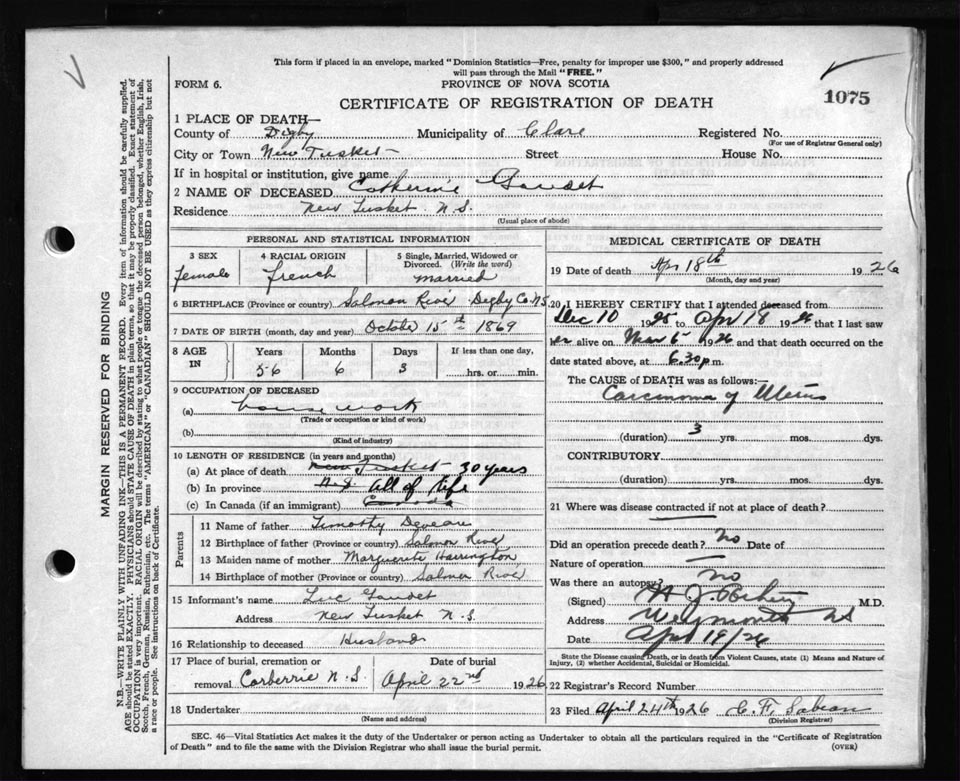 This form if placed in an envelope, marked "Dominion Statistics—Free, penalty for improper use $300," and properly addressed
will pass through the Mail "FREE."
FORM 6.
PROVINCE OF NOVA SCOTIA
CERTIFICATE OF REGISTRATION OF DEATH
1075
1 PLACE OF DEATH—
County of Digby Municipality of Clare Registered No.
(For use of Registrar General only)
City or Town New Tusket Street House No.
If in hospital or institution, give name
2 NAME OF DECEASED Catherine Gaudet
Residence New Tusket N.S.
(Usual place of abode)
PERSONAL AND STATISTICAL INFORMATION
3 SEX
female
4 RACIAL ORIGIN
french
5 Single, Married, Widowed or
Divorced. (Write the word)
married
6 BIRTHPLACE (Province or country) Salmon River Digby Co N.S.
7 DATE OF BIRTH (month, day and year) October 15th 1869
8 AGE IN
Years Months Days If less than one day,
56 6 3 hrs. or min.
9 OCCUPATION OF DECEASED
(a) house work
(Trade or occupation or kind of work)
(b)
(Kind of industry)
10 LENGTH OF RESIDENCE (in years and months)
(a) At place of death New Tusket 30 years
(b) In province N.S. all of life
(c) In Canada (if an immigrant) Canada
Parents
11 Name of father Timothy Deveau
12 Birthplace of father (Province or country) Salmon River
13 Maiden name of mother Marguarite Harrington
14 Birthplace of mother (Province or country) Salmon River
15 Informant's name Luc Gaudet
Address New Tusket N.S.
16 Relationship to deceased Husband
17 Place of burial, cremation or Date of burial
removal Corberrie N.S. April 22nd 1926
18 Undertaker
(Name and address)
MEDICAL CERTIFICATE OF DEATH
19 Date of death Apr 18th 1926
(Month, day and year)
20 I HEREBY CERTIFY that I attended deceased from
Dec 10 1925 to Apr 18 1926 that I last saw
her alive on Mar 5 1926 and that death occurred on the
date stated above, at 6.30 p.m.
The CAUSE of DEATH was as follows:—
Carcinoma of Uterus
(duration) 3 yrs. mos. dys.
CONTRIBUTORY
(duration) yrs. mos. dys.
21 Where was disease contracted if not at place of death?
Did an operation precede death? no Date of
Nature of operation —
Was there an autopsy? no
(Signed) M.D.
Address Weymouth NS
Date Apr 19/26
State the Disease causing Death, or in death from Violent Causes, state (1) Means and Nature of
Injury, (2) whether Accidental, Suicidal or Homicidal.
22 Registrar's Record Number
23 Filed April 24th 1926 C. F. Sabean
(Division Registrar)
SEC. 46—Vital Statistics Act makes it the duty of the Undertaker or person acting as Undertaker to obtain all the particulars required in the "Certificate of Registration
of Death" and to file the same with the Division Registrar who shall issue the burial permit.
(OVER)
MARGIN RESERVED FOR BINDING
N.B.—WRITE PLAINLY WITH UNFADING INK—THIS IS A PERMANENT RECORD. Every item of information should be carefully supplied.
AGE should be stated EXACTLY. PHYSICIANS should STATE CAUSE OF DEATH in plain terms, so that it may be properly classified. Exact statement of
OCCUPATION is very important. RACIAL ORIGIN will be described by stating to what people or tongue the deceased person belonged, whether English, Irish,
Scotch, French, German, Russian, Ruthenian, etc. The terms "AMERICAN" or "CANADIAN" SHOULD NOT BE USED as they express citizenship but not
a race or people. See instructions on back of Certificate.